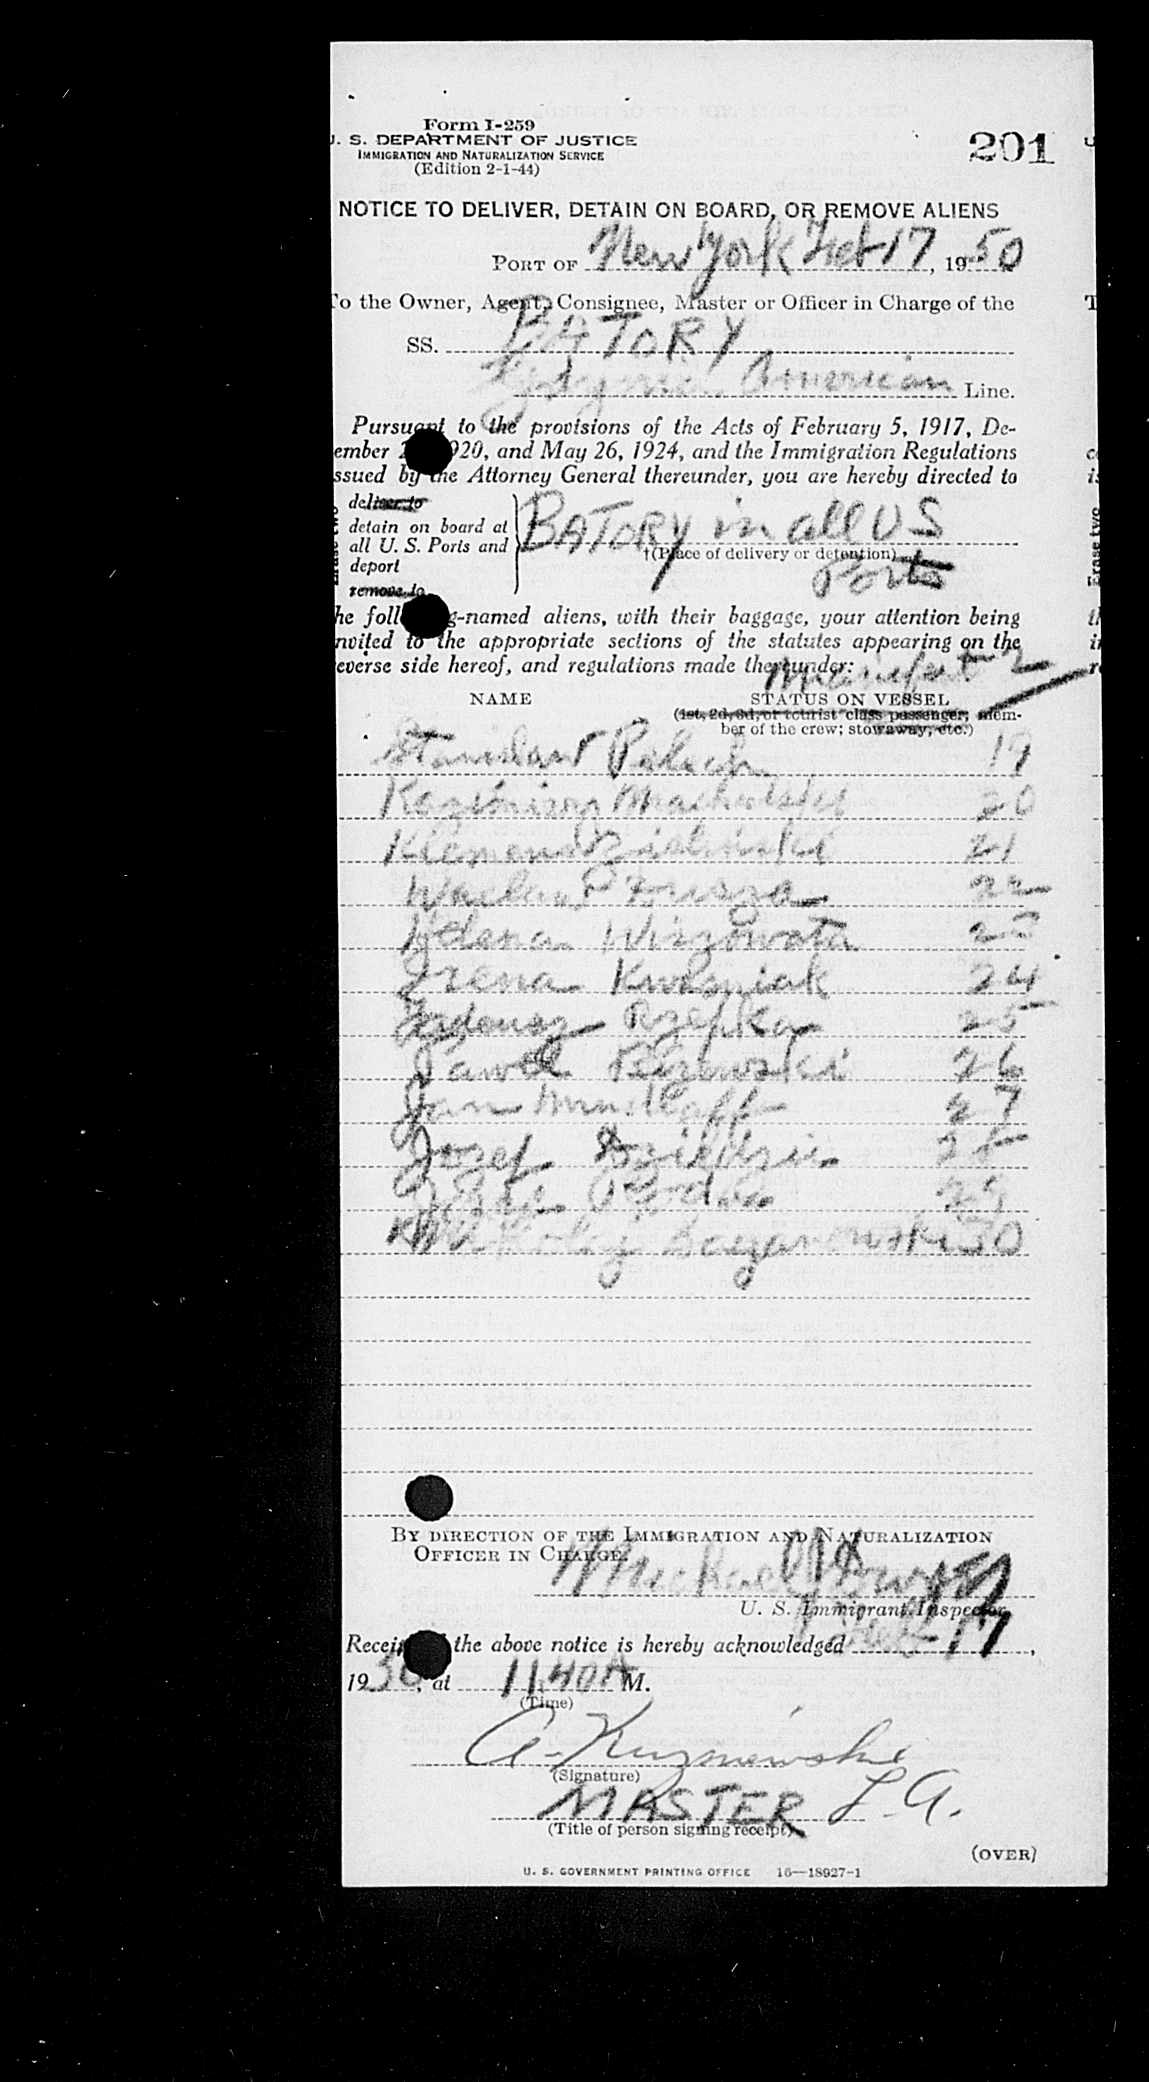 Form I-259
U. S. DEPARTMENT OF JUSTICE
IMMIGRATION AND NATURALIZATION SERVICE
(Edition 2-1-44)
201
NOTICE TO DELIVER, DETAIN ON BOARD, OR REMOVE ALIENS
PORT OF New York Feb 17, 1950
To the Owner, Agent, Consignee, Master or Officer in Charge of the
SS. BATORY
Gdynia American Line.
Pursuant to the provisions of the Acts of February 5, 1917, De-
ember 2 920, and May 26, 1924, and the Immigration Regulations
ssued by the Attorney General thereunder, you are hereby directed to
deliver to
detain on board at
all U. S. Ports and
deport
remove to
BATORY in all US
†(Place of delivery or detention)
Ports
he foll g-named aliens, with their baggage, your attention being
nvited to the appropriate sections of the statutes appearing on the
everse side hereof, and regulations made thereunder:
Manifest 2
NAME STATUS ON VESSEL
(1st, 2d, 3d, or tourist class passenger; mem-
ber of the crew; stowaway, etc.)
Stanislaw 19
Kazimierz 20
Klemens Zielinski 21
Waclaw 22
Helena Wiszowata 23
Irena Kwasniak 24
Tadeusz Rzepka 25
Pawel 26
Jan 27
Jozef Dziedzic 28
29
Mikolaj 30
BY DIRECTION OF THE IMMIGRATION AND NATURALIZATION
OFFICER IN CHARGE.
Michael
U. S. Immigrant Inspector.
Receip the above notice is hereby acknowledged Feb 17,
1950, at 11.40 A M.
(Time)
A. Kuzniewski
(Signature)
MASTER
(Title of person signing receipt)
(OVER)
U. S. GOVERNMENT PRINTING OFFICE 16—18927-1